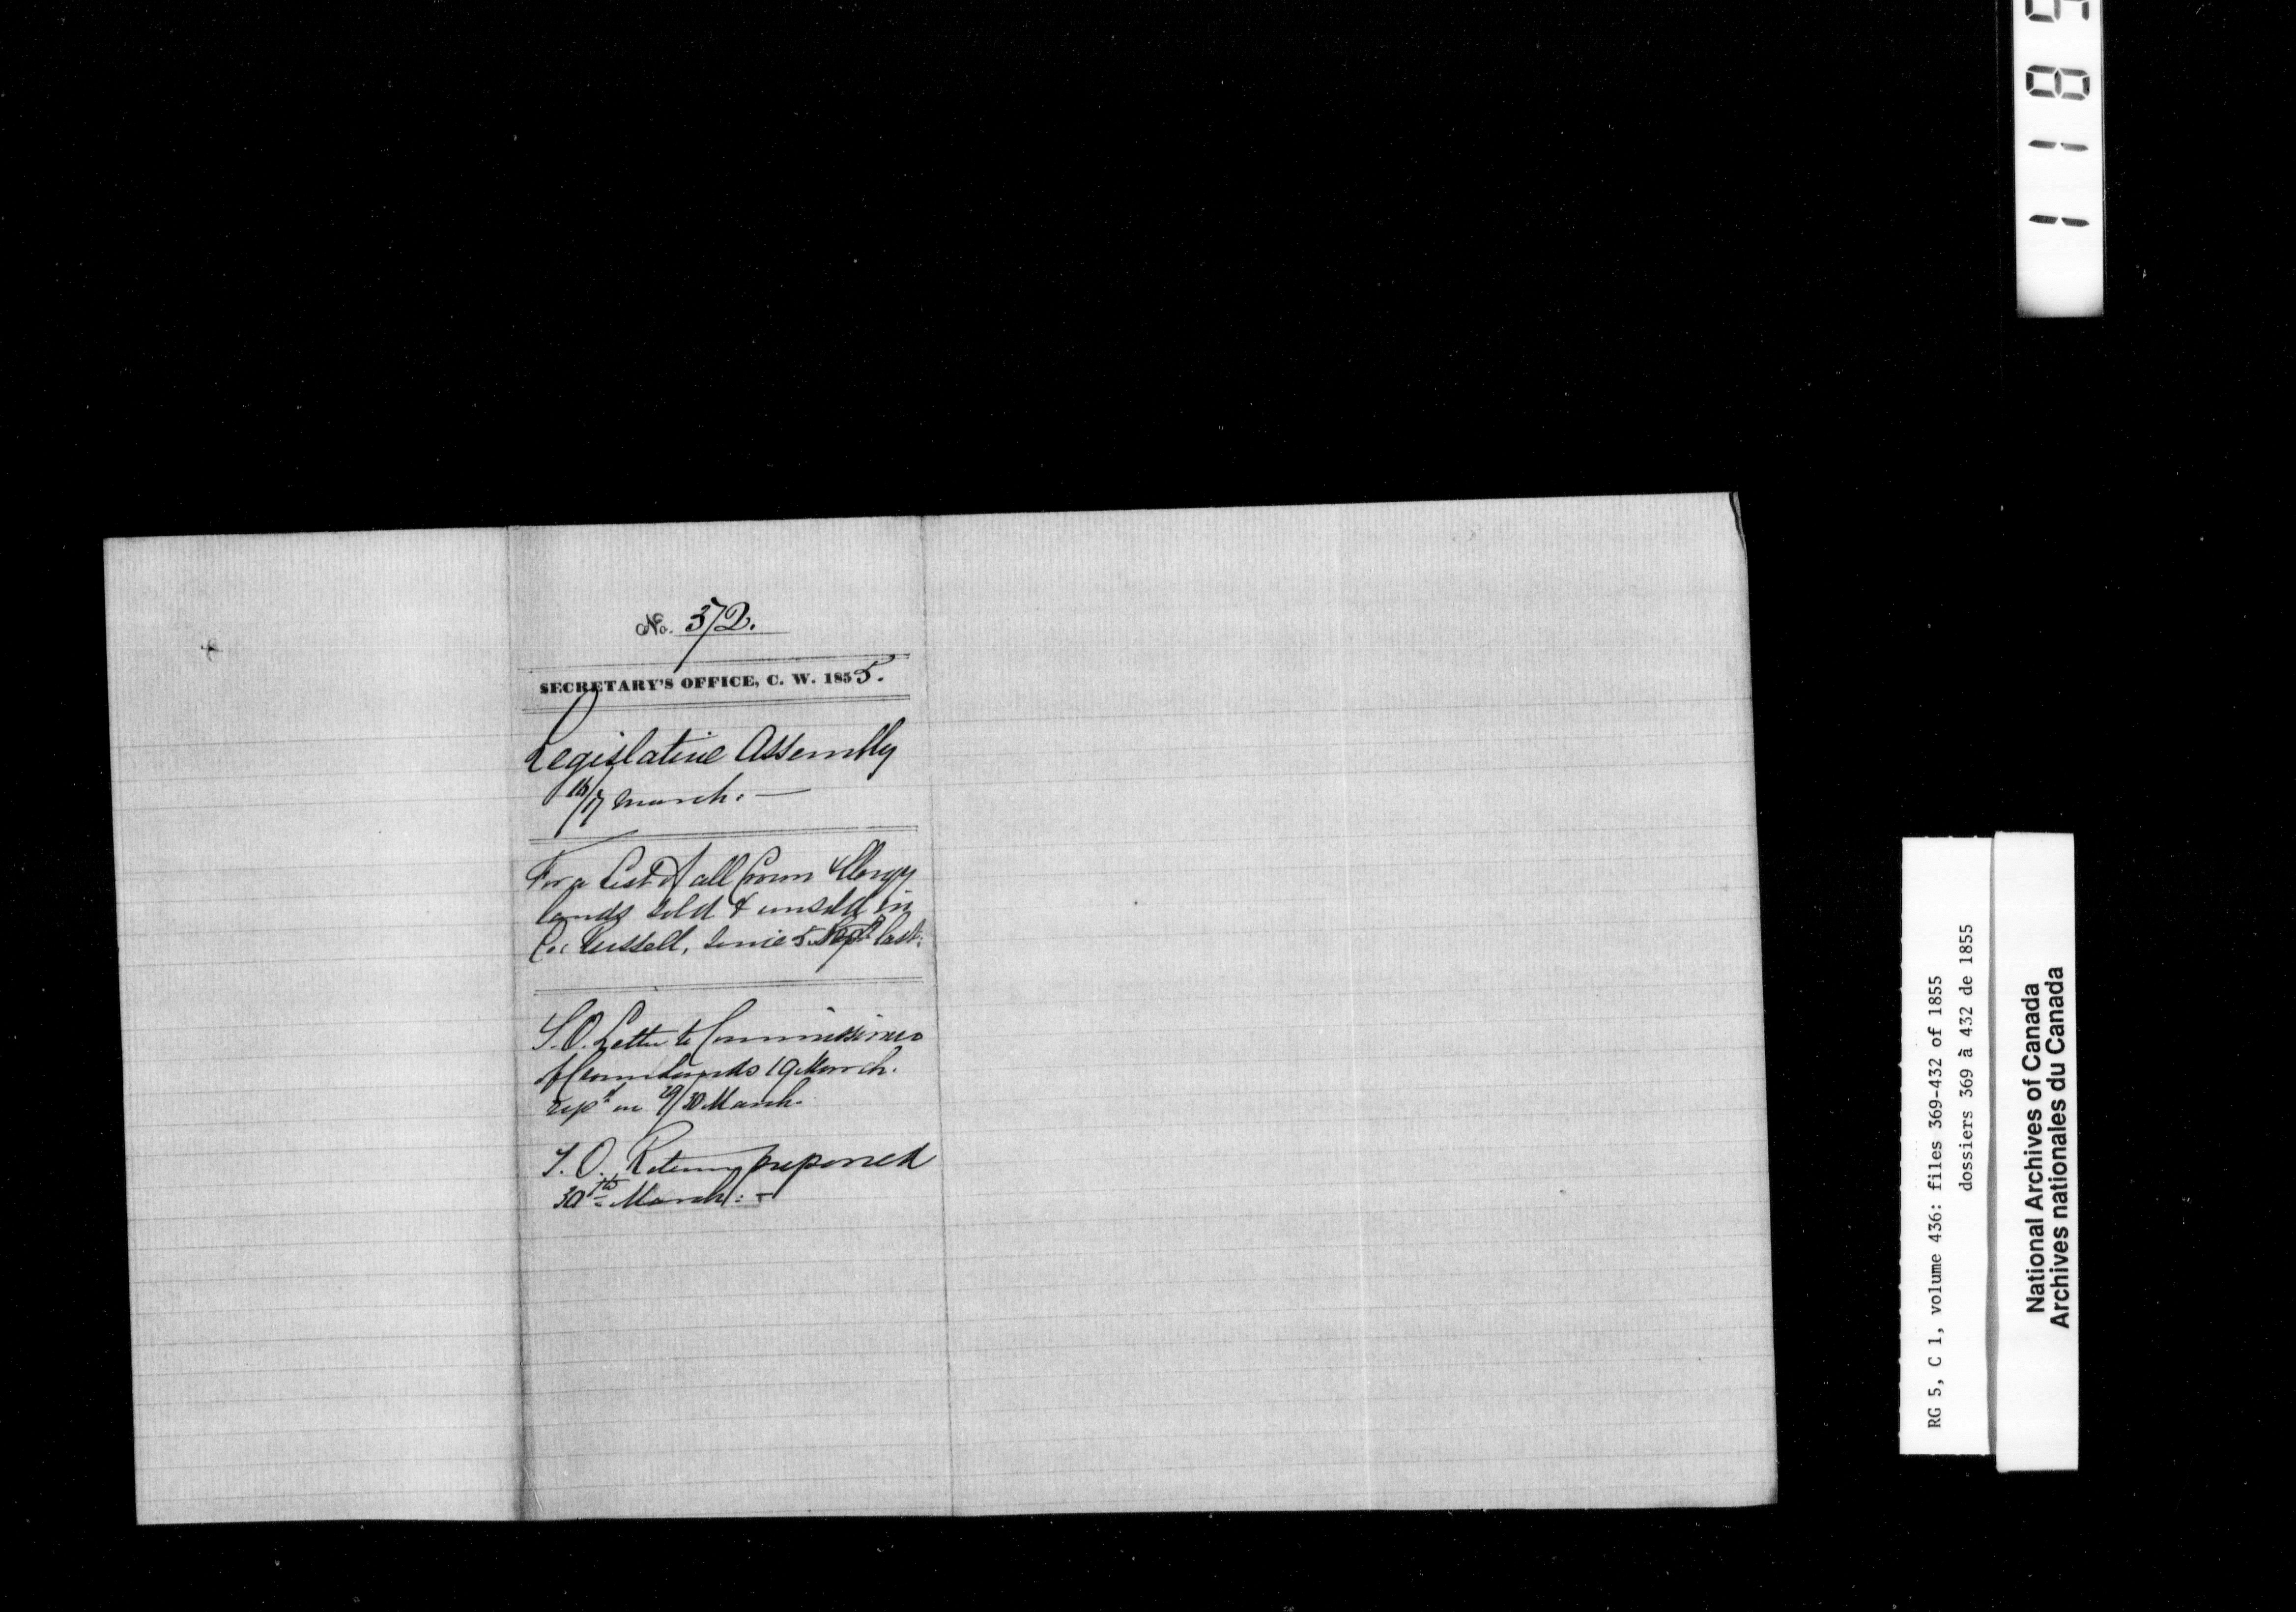 No. 372.
SECRETARY'S OFFICE, C. W. 1855.
Legislative Assembly
16/17 March. —
For a List of all Crown & Clergy
lands sold & unsold in
Co: Russell, since 5 Sept last.
S.O. Letter to Commissioner
of Crown Lands 19 March.
repd on 29/30 March.
S. O. Return prepared
30th March: -
1 1 8 5
RG 5, C 1, volume 436: files 369-432 of 1855
dossiers 369 à 432 de 1855
National Archives of Canada
Archives nationales du Canada